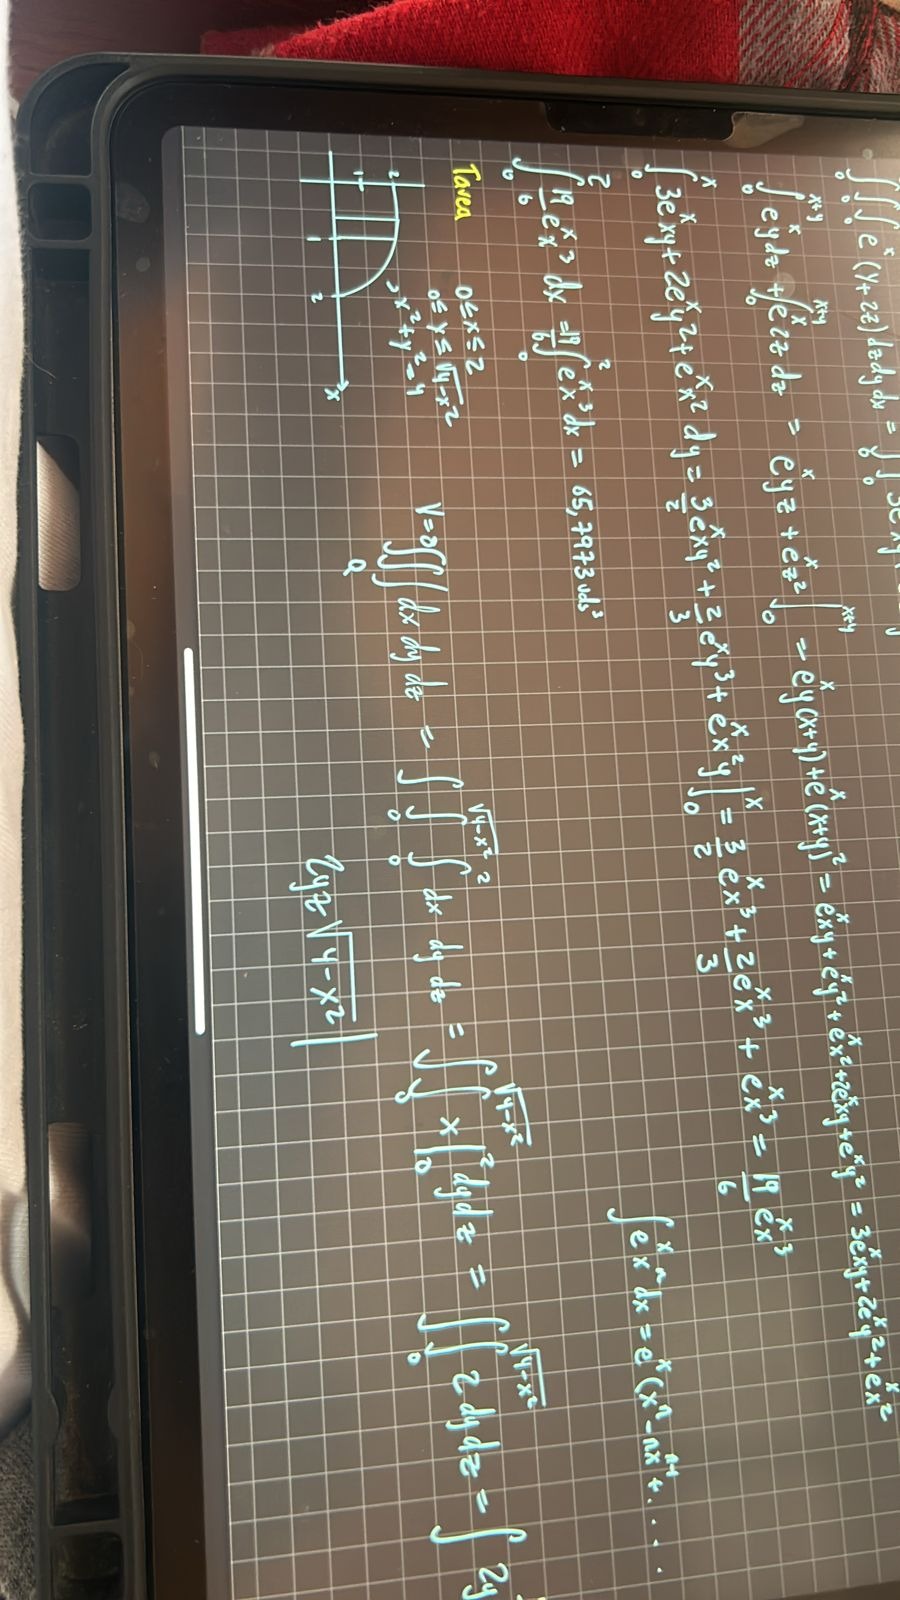 ∫₀∫₀∫₀ eˣ (y+2z) dz dy dx = ∫₀∫₀ 3eˣxy
∫₀ˣ⁺ʸ eˣy dz + ∫₀ˣ⁺ʸ eˣ2z dz = eˣyz + eˣz² |₀ˣ⁺ʸ = eˣy(x+y) + eˣ(x+y)² = eˣxy + eˣy² + eˣx² + 2eˣxy + eˣy² = 3eˣxy + 2eˣy² + eˣx²
∫₀ˣ 3eˣxy + 2eˣy² + eˣx² dy = 3/2 eˣxy² + 2/3 eˣy³ + eˣx²y |₀ˣ = 3/2 eˣx³ + 2/3 eˣx³ + eˣx³ = 19/6 eˣx³
∫ eˣxⁿ dx = eˣ (xⁿ - nxⁿ⁻¹ + ....
∫₀² 19/6 eˣx³ dx = 19/6 ∫₀² eˣx³ dx = 65,7973 uds³
Tarea
0≤x≤2
0≤y≤√4-x²
x²+y²=4
V= ∭ dx dy dz = ∫ ∫₀^√4-x² ∫₀² dx dy dz = ∫ ∫₀^√4-x² x |₀² dy dz = ∫ ∫₀^√4-x² 2 dy dz = ∫ 2y
Q
2
1
1
2
x
2yz √4-x² |